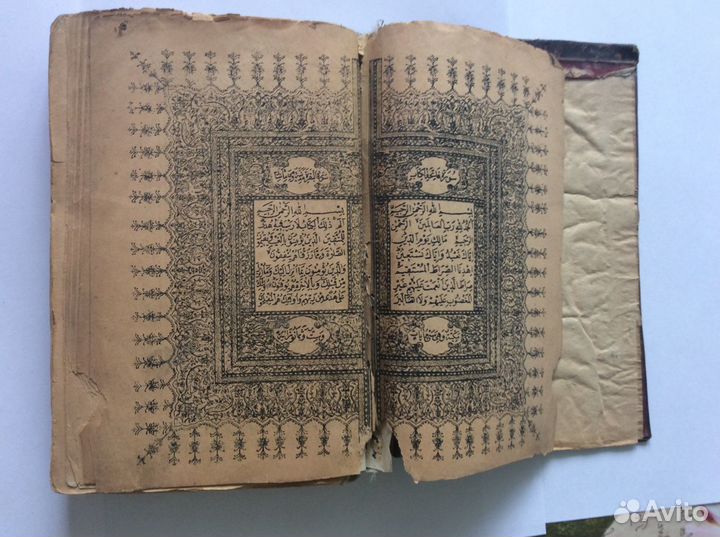 بسم الله الرحمن الرحيم
الحمد لله رب العالمين الرحمن
الرحيم مالك يوم الدين
اياك نعبد واياك نستعين
اهدنا الصراط المستقيم
صراط الذين انعمت عليهم غير
المغضوب عليهم ولا الضالين
بسم الله الرحمن الرحيم
الم ذلك الكتاب لا ريب فيه هدى
للمتقين الذين يؤمنون بالغيب ويقيمون
الصلوة ومما رزقناهم ينفقون
والذين يؤمنون بما انزل اليك وما انزل
من قبلك وبالاخرة هم يوقنون اولئك
على هدى من ربهم واولئك هم المفلحون
وست وثمانون اية
Avito